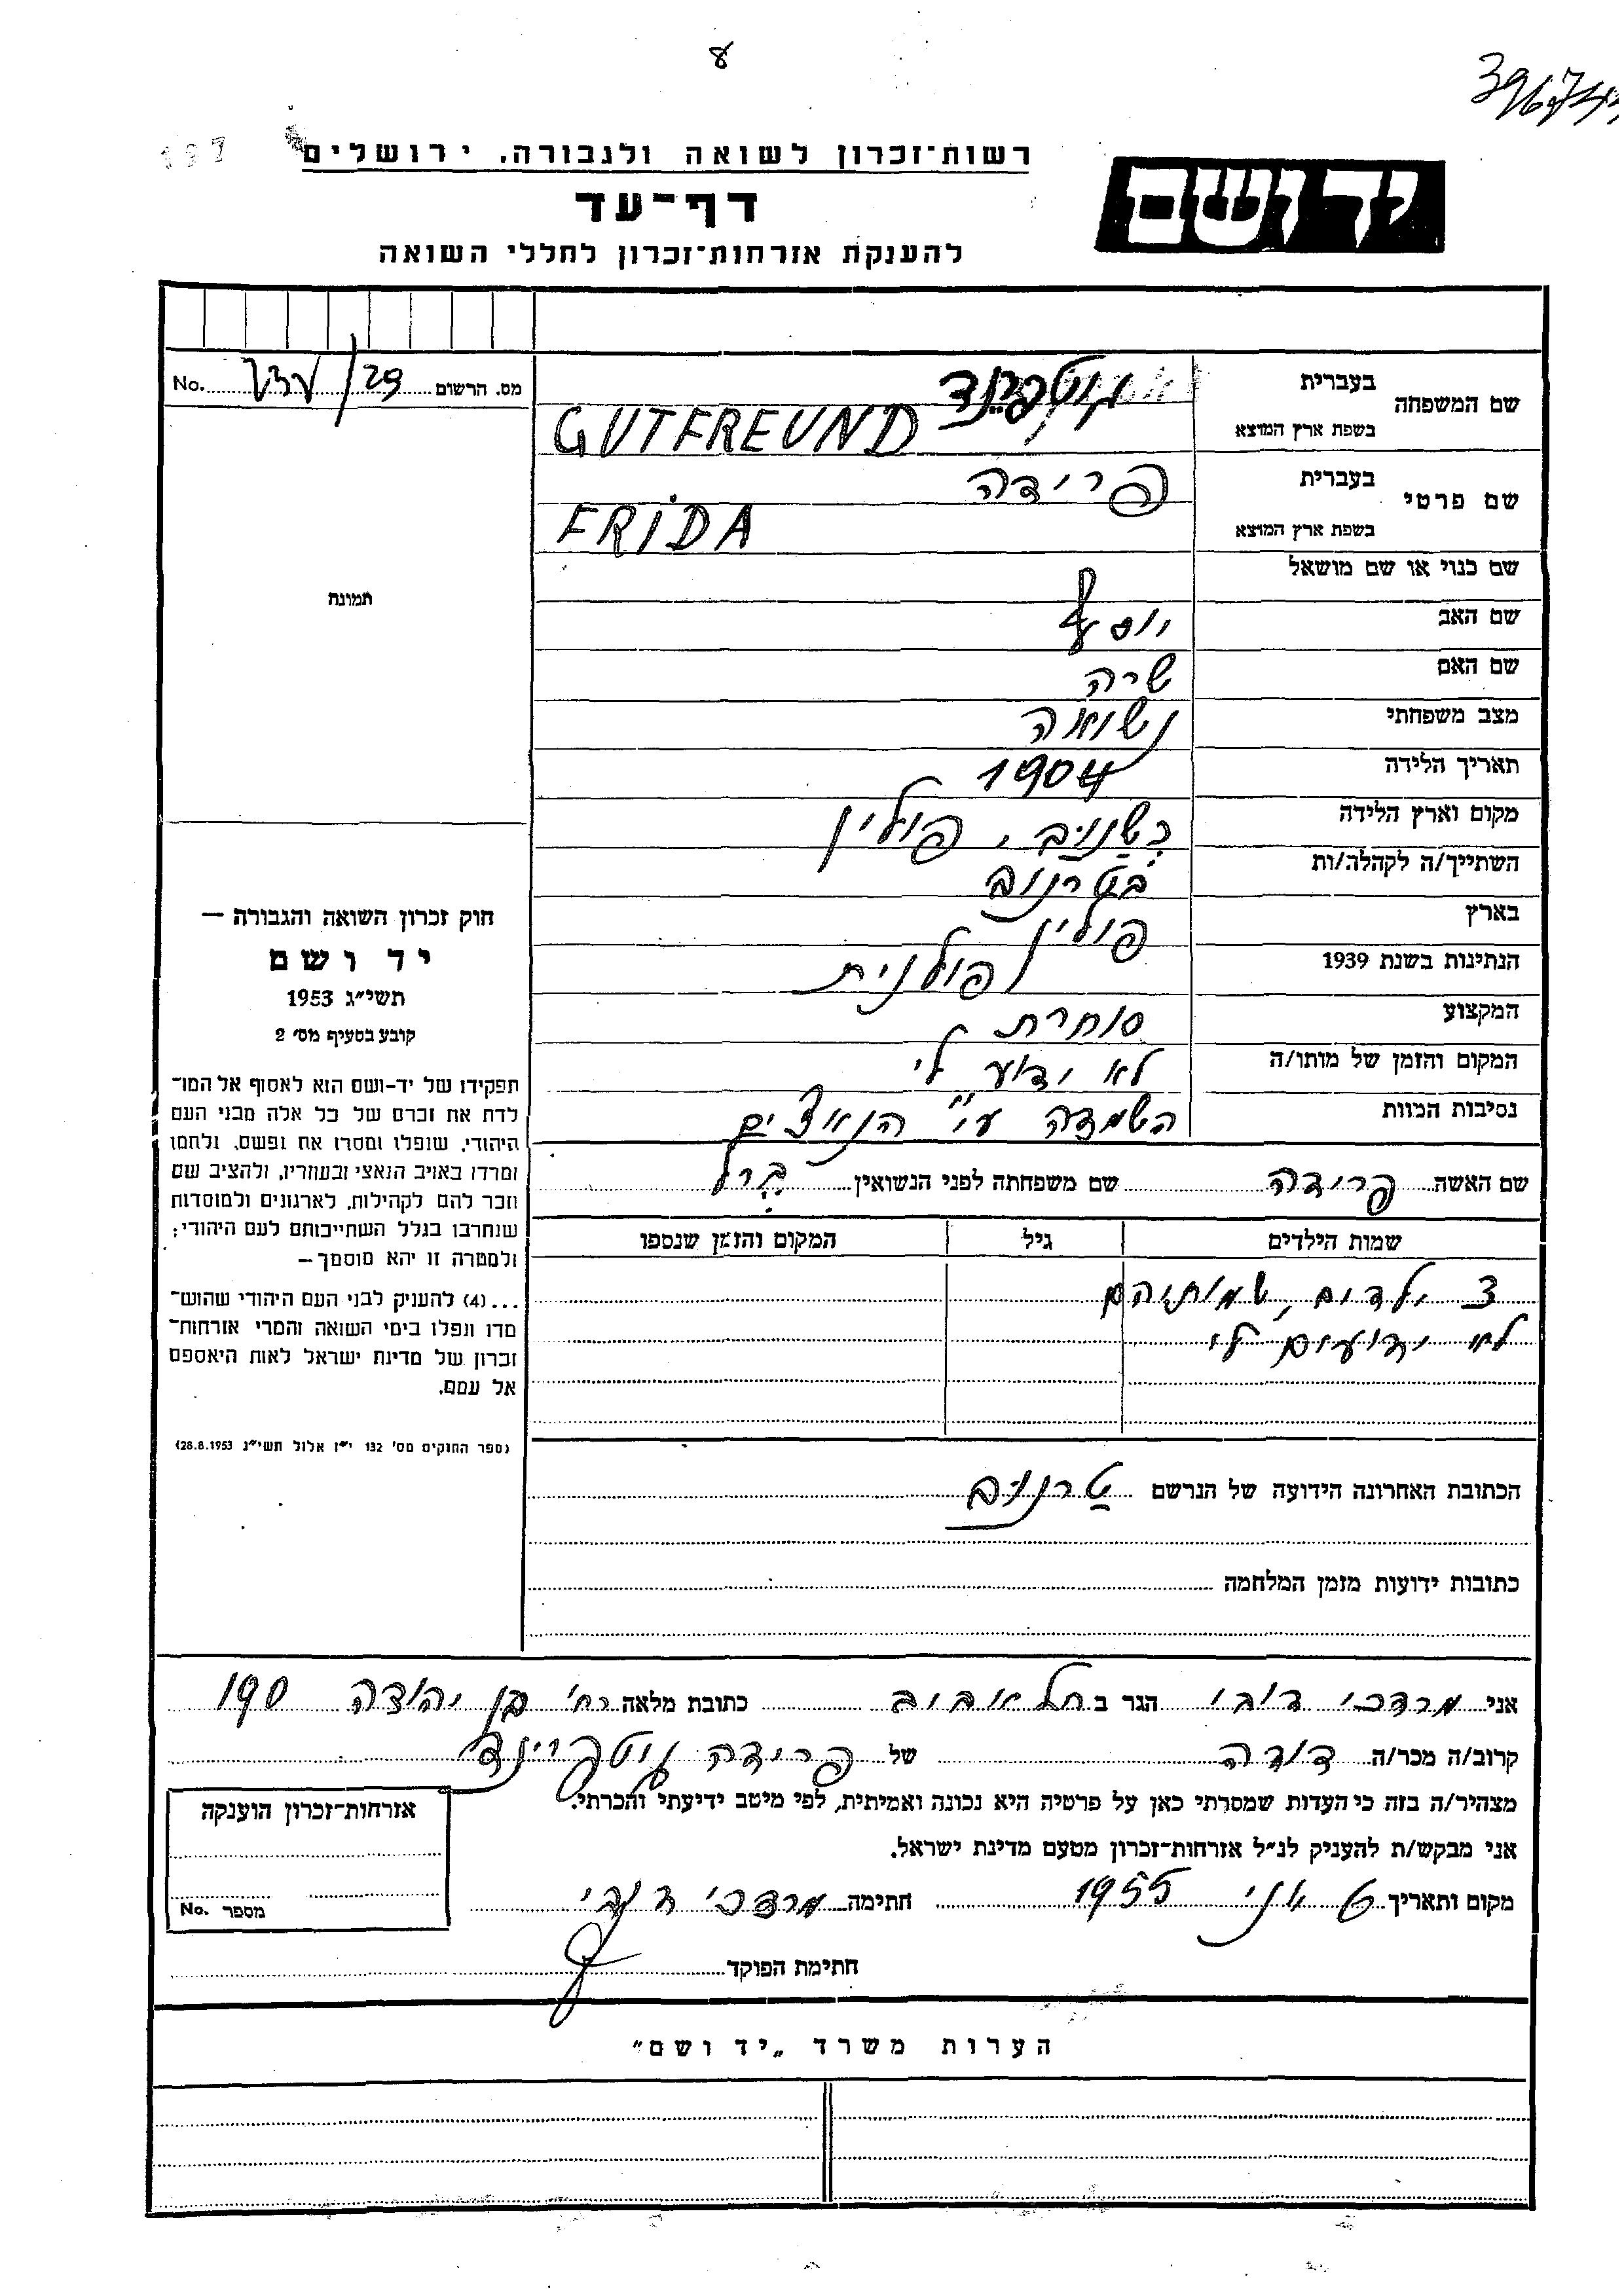 8
רשות־זכרון לשואה ולגבורה, ירושלים
דף־עד
להענקת אזרחות־זכרון לחללי השואה
יד ושם
מס. הרשום 29/ No.
שם המשפחה
בעברית גוטפרינד
בשפת ארץ המוצא GUTFREUND
שם פרטי
בעברית פרידה
בשפת ארץ המוצא FRIDA
שם כנוי או שם מושאל
שם האב יוסף
שם האם שרה
מצב משפחתי נשואה
תאריך הלידה 1904
מקום וארץ הלידה כשנוב, פולין
השתייך/ה לקהלה/ות בטרנוב
בארץ פולין
הנתינות בשנת 1939 פולנית
המקצוע סוחרת
המקום והזמן של מותו/ה לא ידוע לי
נסיבות המוות השמדה ע"י הנאצים
שם האשה פרידה שם משפחתה לפני הנשואין
שמות הילדים גיל המקום והזמן שנספו
3 ילדים, שמותיהם
לא ידועים לי
הכתובת האחרונה הידועה של הנרשם טרנוב
כתובות ידועות מזמן המלחמה
תמונה
חוק זכרון השואה והגבורה —
יד ושם
תשי״ג 1953
קובע בסעיף מס׳ 2
תפקידו של יד-ושם הוא לאסוף אל המו־
לדת את זכרם של כל אלה מבני העם
היהודי, שנפלו ומסרו את נפשם, נלחמו
ומרדו באויב הנאצי ובעוזריו, ולהציב שם
וזכר להם לקהילות, לארגונים ולמוסדות
שנחרבו בגלל השתייכותם לעם היהודי;
ולמטרה זו יהא מוסמך—
...(4) להעניק לבני העם היהודי שהוש־
מדו ונפלו בימי השואה והמרי אזרחות־
זכרון של מדינת ישראל לאות היאספם
אל עמם.
(ספר החוקים מס׳ 132 י״ז אלול תשי״ג 28.8.1953)
אני מרדכי דובי הגר ב תל אביב כתובת מלאה רח' בן יהודה 190
קרוב/ה מכר/ה דודה של פרידה גוטפרינד
מצהיר/ה בזה כי העדות שמסרתי כאן על פרטיה היא נכונה ואמיתית, לפי מיטב ידיעתי והכרתי.
אני מבקש/ת להעניק לנ״ל אזרחות־זכרון מטעם מדינת ישראל.
מקום ותאריך 1955 חתימה מרדכי דובי
חתימת הפוקד
אזרחות־זכרון הוענקה
מספר No.
הערות משרד „יד ושם״